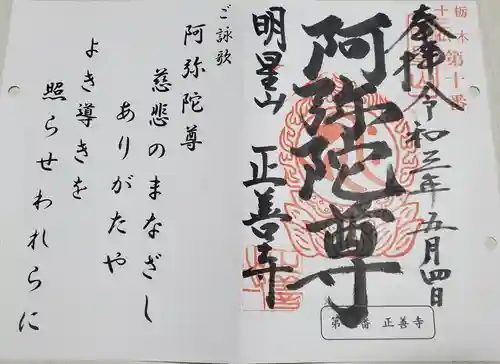 栃木
十三仏
第十番
奉拝
令和三年五月四日
阿弥陀尊
明星山
正善寺
第十番 正善寺
ご詠歌
阿弥陀尊
慈悲のまなざし
ありがたや
よき導きを
照らせわれらに